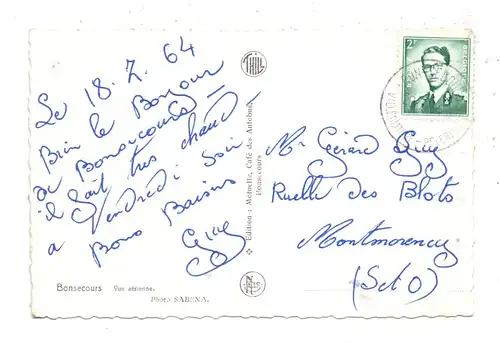 Le 18.7.64
Bien le Bonjour
de Bonsecours
il fait très chaud
à Vendredi soir
Bons Baisers
Guy
Bonsecours Vue aérienne.
Photo SABENA.
Edition : Moinelle, Café des Autobus, Bonsecours
2F
Mr Gérard Guy
Ruelle des Blots
Montmorency
(S et O)